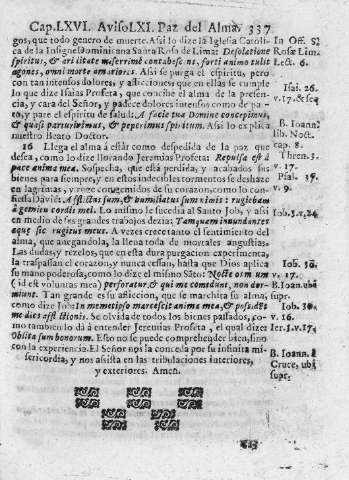 Cap. LXVI. Aviso LXI. Paz del Alma. 337
gos, que todo genero de muerte. Assi lo dize la Iglesia Catoli-
ca de la Insigne Dominicana Santa Rosa de Lima: Desolatione
spiritus, & ariditate miserrimè contabescens, forti animo tulit
agones, omni morte amariores. Assi se purga el espiritu, pero
con tan intensos dolores, y aflicciones que en ellas se cumple
lo que dize Isaias Profeta, que concibe el alma de la presen-
cia, y cara del Señor, y padece dolores intensos como de pa-
to, y pare el espiritu de salud: A facie tua Domine concepimus,
& quasi parturivimus, & peperimus spiritum. Assi lo explica
nuestro Beato Doctor.
16 Llega el alma á estár como despedida de la paz que
desea, como lo dize llorando Jeremias Profeta: Repulsa est à
pace anima mea. Sospecha, que està perdida, y acabados sus
bienes para siempre, y en estos indecibles tormentos se deshaze
en lagrimas, y rozes congemidos de su corazon, como lo con-
fiessa David: Afflictus sum, & humiliatus sum nimis: rugiebam
à gemitu cordis mei. Lo mismo le sucedia al Santo Job, y assi
en medio de sus grandes trabajos dezia: Tamquam inundantes
aquæ sic rugitus meus. A vezes crece tanto el sentimiento del
alma, que anegandola, la llena toda de mortales angustias.
Las dudas, y rezelos, que en esta dura purgacion experimenta,
la traspassan el corazon, y nunca cessan, hasta que Dios aplica
su mano poderosa, como lo dize el mismo Sãto: Nocte os meum
( id est voluntas mea) perforatur, & qui me comedunt, non dor-
miunt. Tan grande es su afliccion, que se marchita su alma,
como dize Job: In memetipso marcescit anima mea, & possidẽt
me dies afflictionis. Se olvida de todos los bienes passados, co-
mo tambien lo dá á entender Jeremias Profeta, el qual dize:
Oblitus sum bonorum. Esto no se puede comprehender bien, sino
con la experiencia. El Señor nos la conceda por su infinita mi-
sericordia, y nos assista en las tribulaciones interiores,
y exteriores. Amen.
In Off. S.
Rosæ Lim.
Lect. 6.
Isai. 26.
v. 17. & seq
B. Ioann.
lib. Noct.
cap. 8.
Thren. 3.
v. 17.
Psal. 37.
v. 9.
Iob. 3. v. 24
Iob. 30.
v. 17.
B. Ioan. ubi
supr.
Iob. 30.
v. 16.
Ier. 3. v. 17
B. Ioann. à
Cruce, ubi
supr.